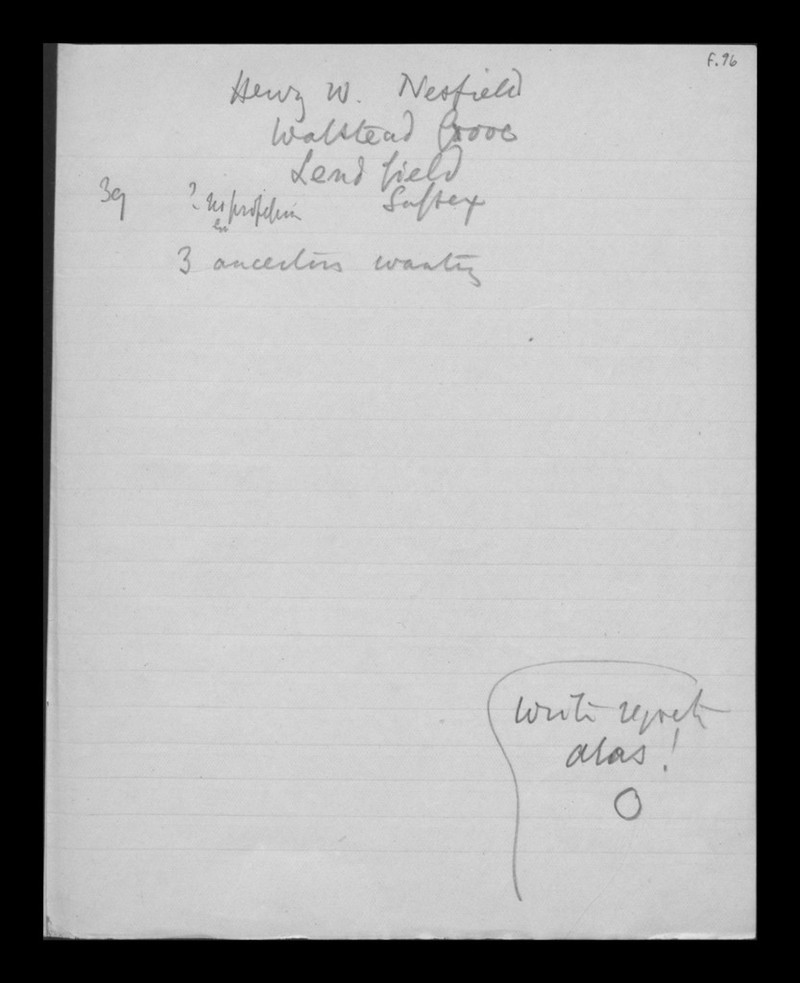 F.96
Henry W. Nesfield
Walstead Grove
Lendfield
39 ? no profession Sussex
3 ancestors wanting
Write regret
alas!
O